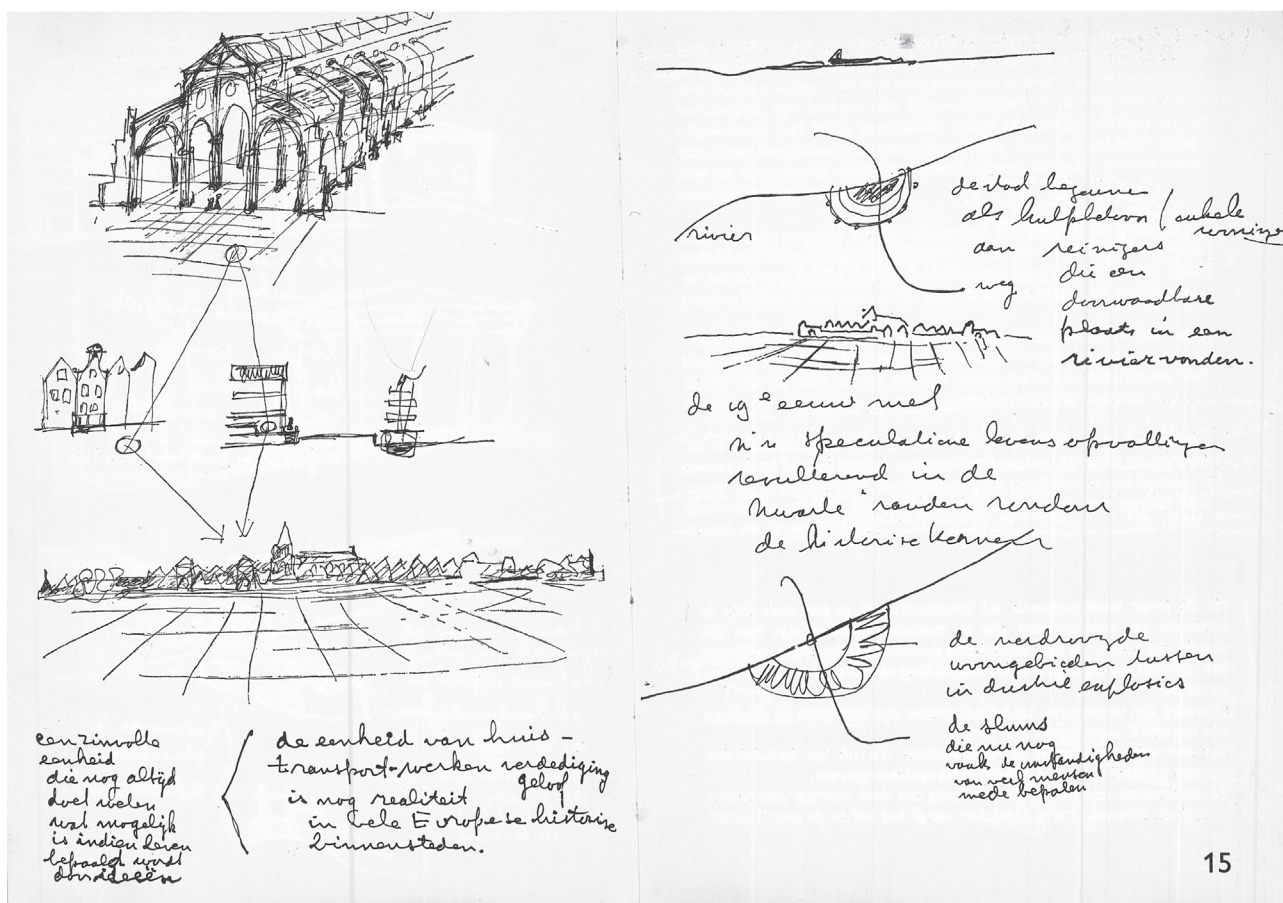 een zinvolle
eenheid
die nog altijd
doet weten
wat mogelijk
is indien leven
bepaald wordt
door ideeën
de eenheid van huis -
transport-werken verdediging
geloof
is nog realiteit
in vele Europese historise
binnensteden.
rivier
weg
de stad begonnen
als hulpbetoon (enkele
woningen
aan reizigers
die een
doorwaadbare
plaats in een
rivier vonden.
de 19e eeuw met
z'n speculatieve levensopvattingen
resulterend in de
zwarte randen rondom
de historise kernen
de verdroogde
woongebieden tussen
industrie explosies
de slums
die nu nog
vaak de omstandigheden
van veel mensen
mede bepalen
15